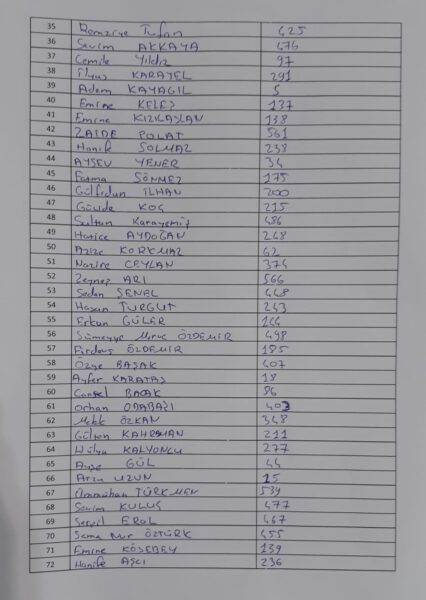 35 Remziye Tufan 425
36 Sevim AKKAYA 476
37 Cemile Yıldız 97
38 İlyas KARAYEL 291
39 Adem KAYAGİL 5
40 Emine KELEŞ 137
41 Emine KIZKAPLAN 138
42 ZAİDE POLAT 561
43 Hanife SOLMAZ 238
44 AYSEV YENER 34
45 Fatma SÖNMEZ 175
46 Gülfidan İLHAN 200
47 Gülude KOÇ 215
48 Sultan Karayemiş 486
49 Hatice AYDOĞAN 248
50 Azize KORKMAZ 62
51 Nazire CEYLAN 374
52 Zeynep ARI 566
53 Sedan ŞENEL 448
54 Hasan TURGUT 243
55 Erkan GÜLER 144
56 Sümeyye Miraç ÖZDEMİR 498
57 Firdevs ÖZDEMİR 185
58 Özge BAŞAK 407
59 Ayfer KARATAŞ 18
60 Cansel BAŞAK 86
61 Orhan ODABAŞI 403
62 Melek ÖZKAN 348
63 Gülten KAHRAMAN 211
64 Hülya KALYONCU 277
65 Ayşe GÜL 44
66 Arzu UZUN 15
67 TÜRKMEN 539
68 Sevim KULUŞ 477
69 Serpil EROL 467
70 Sema Nur ÖZTÜRK 455
71 Emine KÖSEBEY 139
72 Hanife AŞCI 236